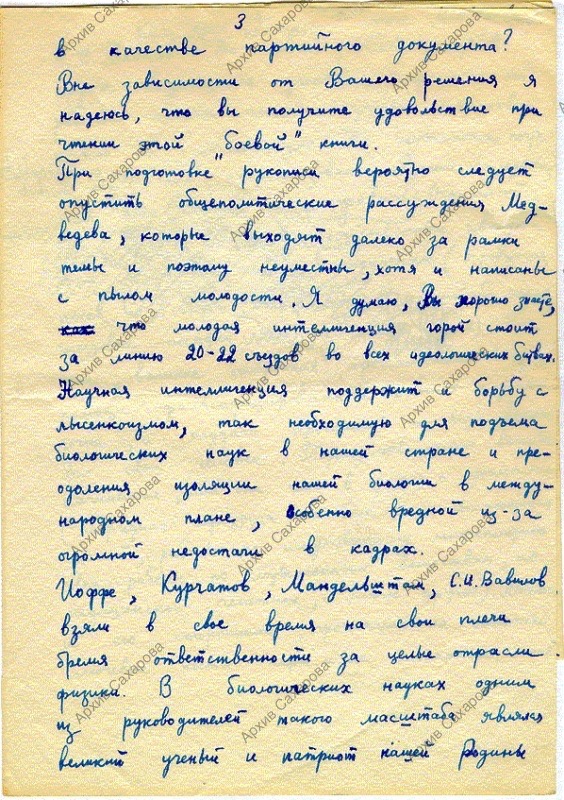 3
в качестве партийного документа?
Вне зависимости от Вашего решения я
надеюсь, что вы получите удовольствие при
чтении этой "боевой" книги.
При подготовке рукописи вероятно следует
опустить общеполитические рассуждения Мед-
ведева, которые выходят далеко за рамки
темы и поэтому неуместны, хотя и написаны
с пылом молодости. Я думаю, Вы хорошо знаете,
что молодая интеллигенция горой стоит
за линию 20-22 съездов во всех идеологических битвах.
Научная интеллигенция поддержит и борьбу с
лысенкоизмом, так необходимую для подъема
биологических наук в нашей стране и пре-
одоления изоляции нашей биологии в между-
народном плане, особенно вредной из-за
огромной недостачи в кадрах.
Иоффе, Курчатов, Мандельштам, С.И. Вавилов
взяли в свое время на свои плечи
бремя ответственности за целые отрасли
физики. В биологических науках одним
из руководителей такого масштаба являлся
великий ученый и патриот нашей Родины
Архив Сахарова